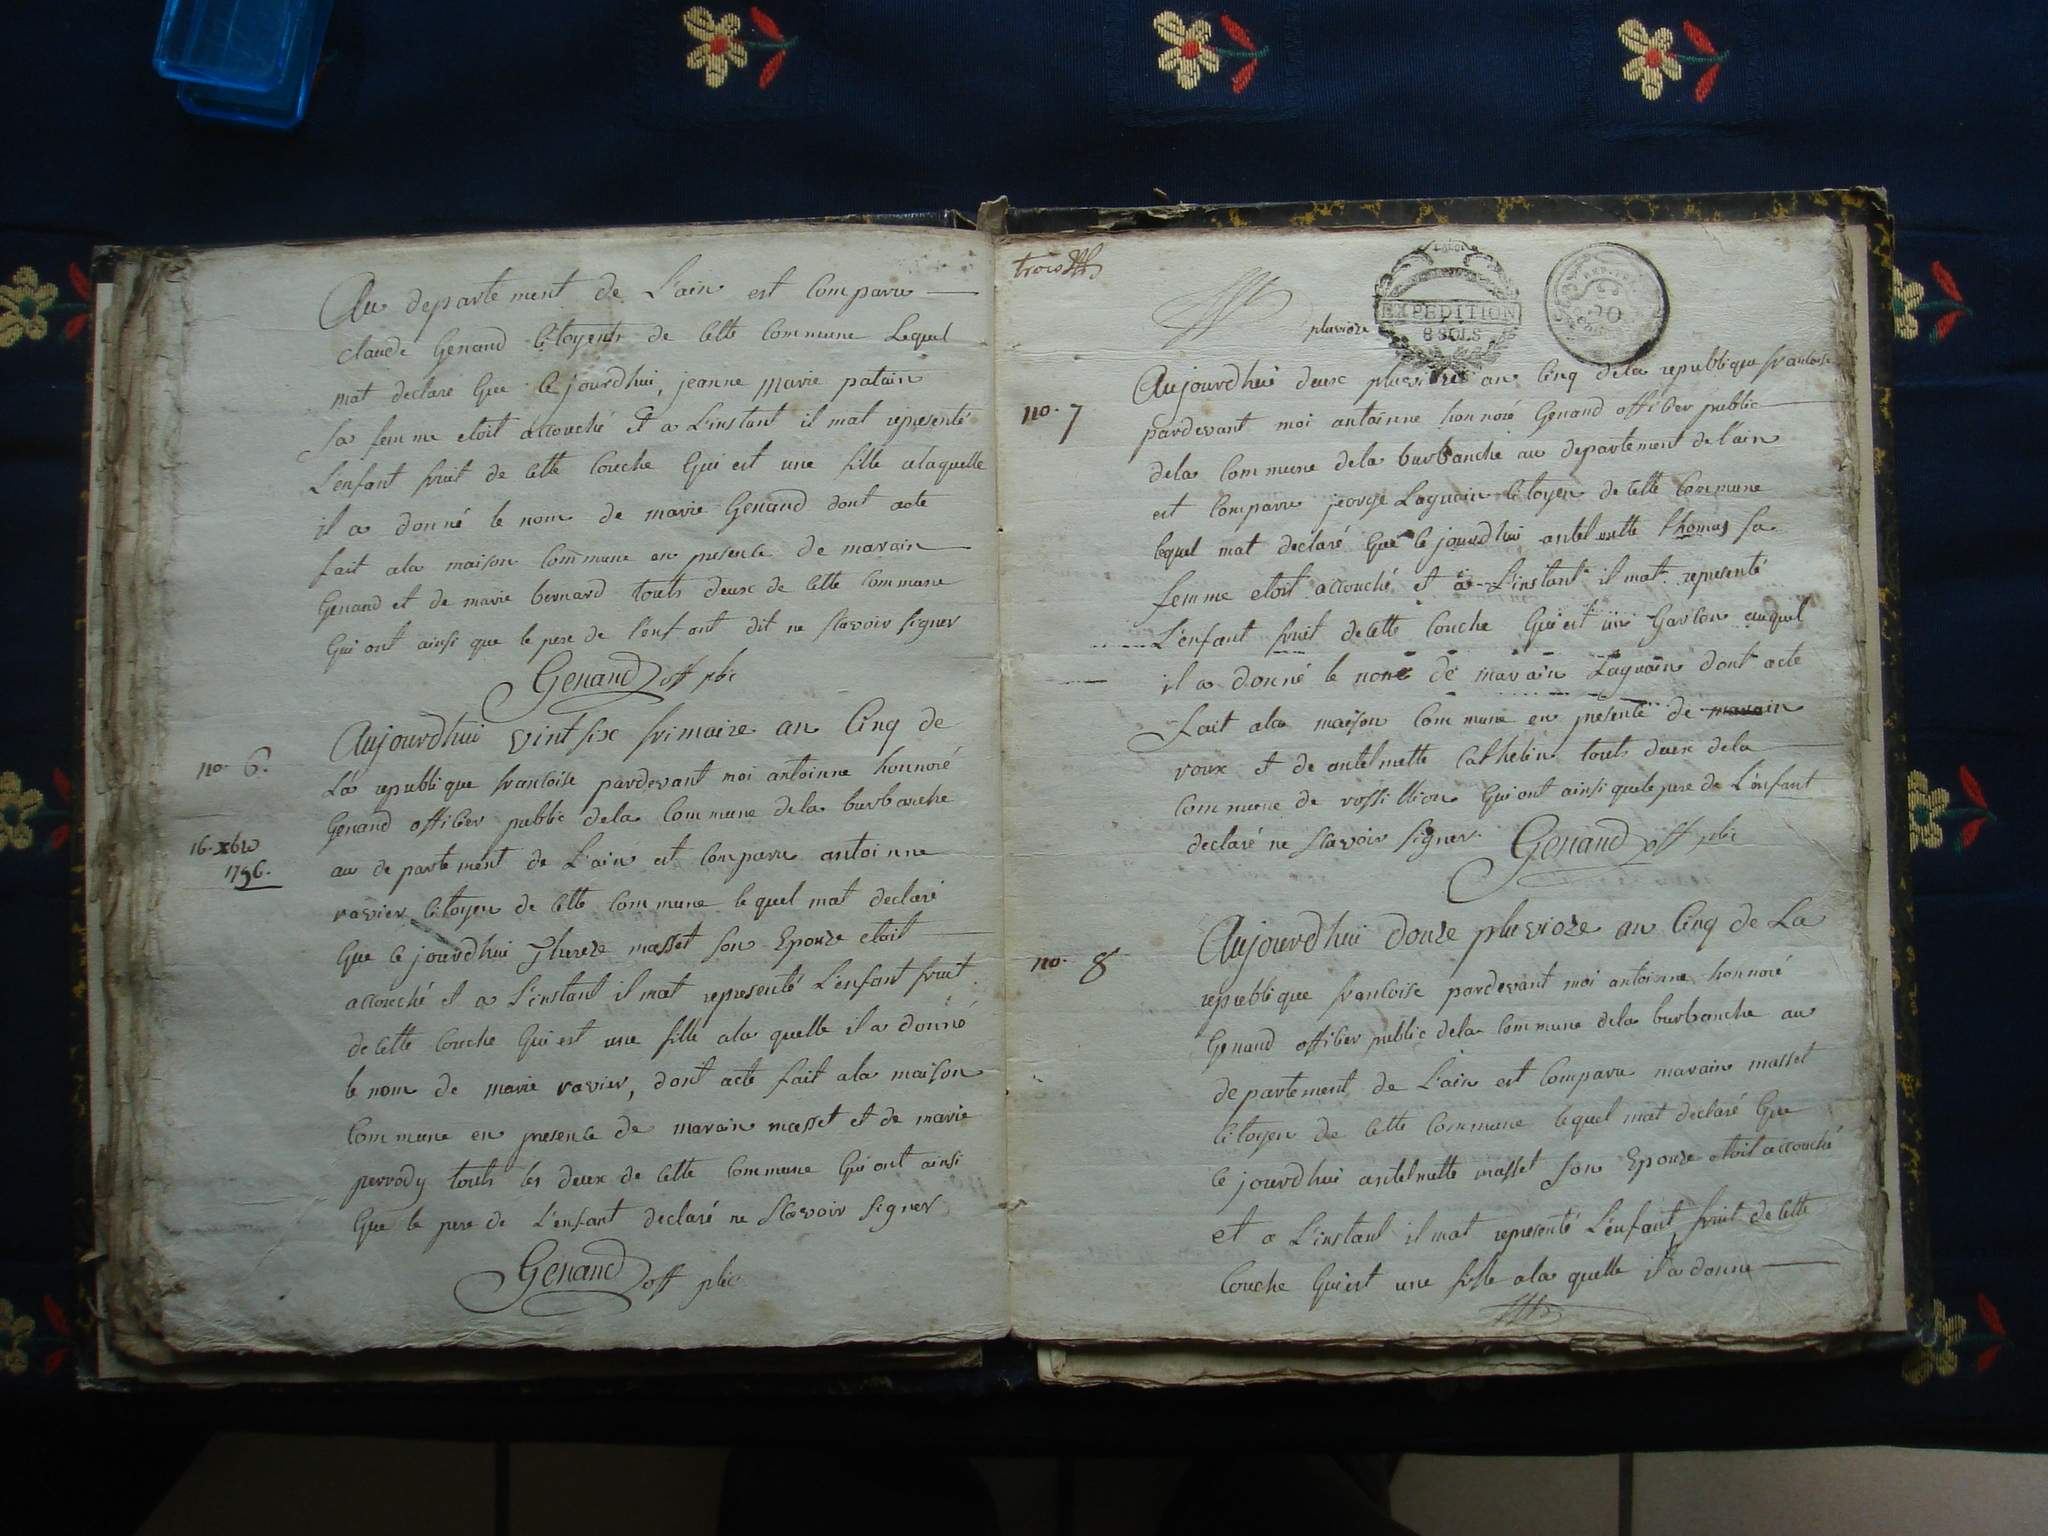 Au departement de L'ain est Comparu
Claude Genand Citoyens de Cette Commune Lequel
mat declare Que Ce jourdhui, jeanne marie patain
sa femme etoit accouché Et a L'instant il mat representé
L'enfant fruit de Cette Couche Qui est une fille alaquelle
il a donné le nom de marie Genand dont acte
fait ala maison Commune en presence de marain
Genand et de marie bernard touts deux de Cette Commune
Qui ont ainsi que le pere de l'enfant dit ne Scavoir Signer
Genand off pbic
no. 6.
16. xbre
1796.
Aujourdhui vint six frimaire an Cinq de
La republique francoise pardevant moi antoinne honnoré
Genand officier public dela Commune dela burbanche
au departement de L'ain est Comparu antoinne
ravier Citoyen de Cette Commune lequel mat declaré
Que Ce jourdhui Thereze masset son Epouze etoit
accouché et a L'instant il mat representé L'enfant fruit
de Cette Couche Qui est une fille ala quelle il a donné
le nom de marie ravier, dont acte fait ala maison
Commune en presence de marain masset et de marie
perrody touts les deux de Cette Commune Qui ont ainsi
Que le pere de L'enfant declaré ne Scavoir Signer
Genand off pbic
trois
pluvioze
EXPEDITION
8 SOLS
20
no. 7
Aujourdhui deux pluvioze an Cinq dela republique francoise
pardevant moi antoinne honnoré Genand officier public
dela Commune dela burbanche au departement de l'ain
est Comparu jeorge Laguain Citoyen de Cette Commune
lequel mat declaré Que Ce jourdhui antelmette thomas sa
femme etoit accouché et a L'instant il mat representé
L'enfant fruit de Cette Couche Qui est un Garcon auquel
il a donné le nom de marain Laguain dont acte
fait ala maison Commune en presente de marain
roux et de antelmette Cathelin touts deux dela
Commune de rossillion Qui ont ainsi que le pere de L'enfant
declaré ne Scavoir Signer. Genand off pbic
no. 8
Aujourdhui douze pluvioze an Cinq de La
republique francoise pardevant moi antoinne honnoré
Genand officier public dela Commune dela burbanche au
departement de L'ain est Comparu marain masset
Citoyen de Cette Commune lequel mat declaré Que
Ce jourdhui antelmette masset son Epouze etoit accouché
et a L'instant il mat representé L'enfant fruit de Cette
Couche Qui est une fille ala quelle il a donne